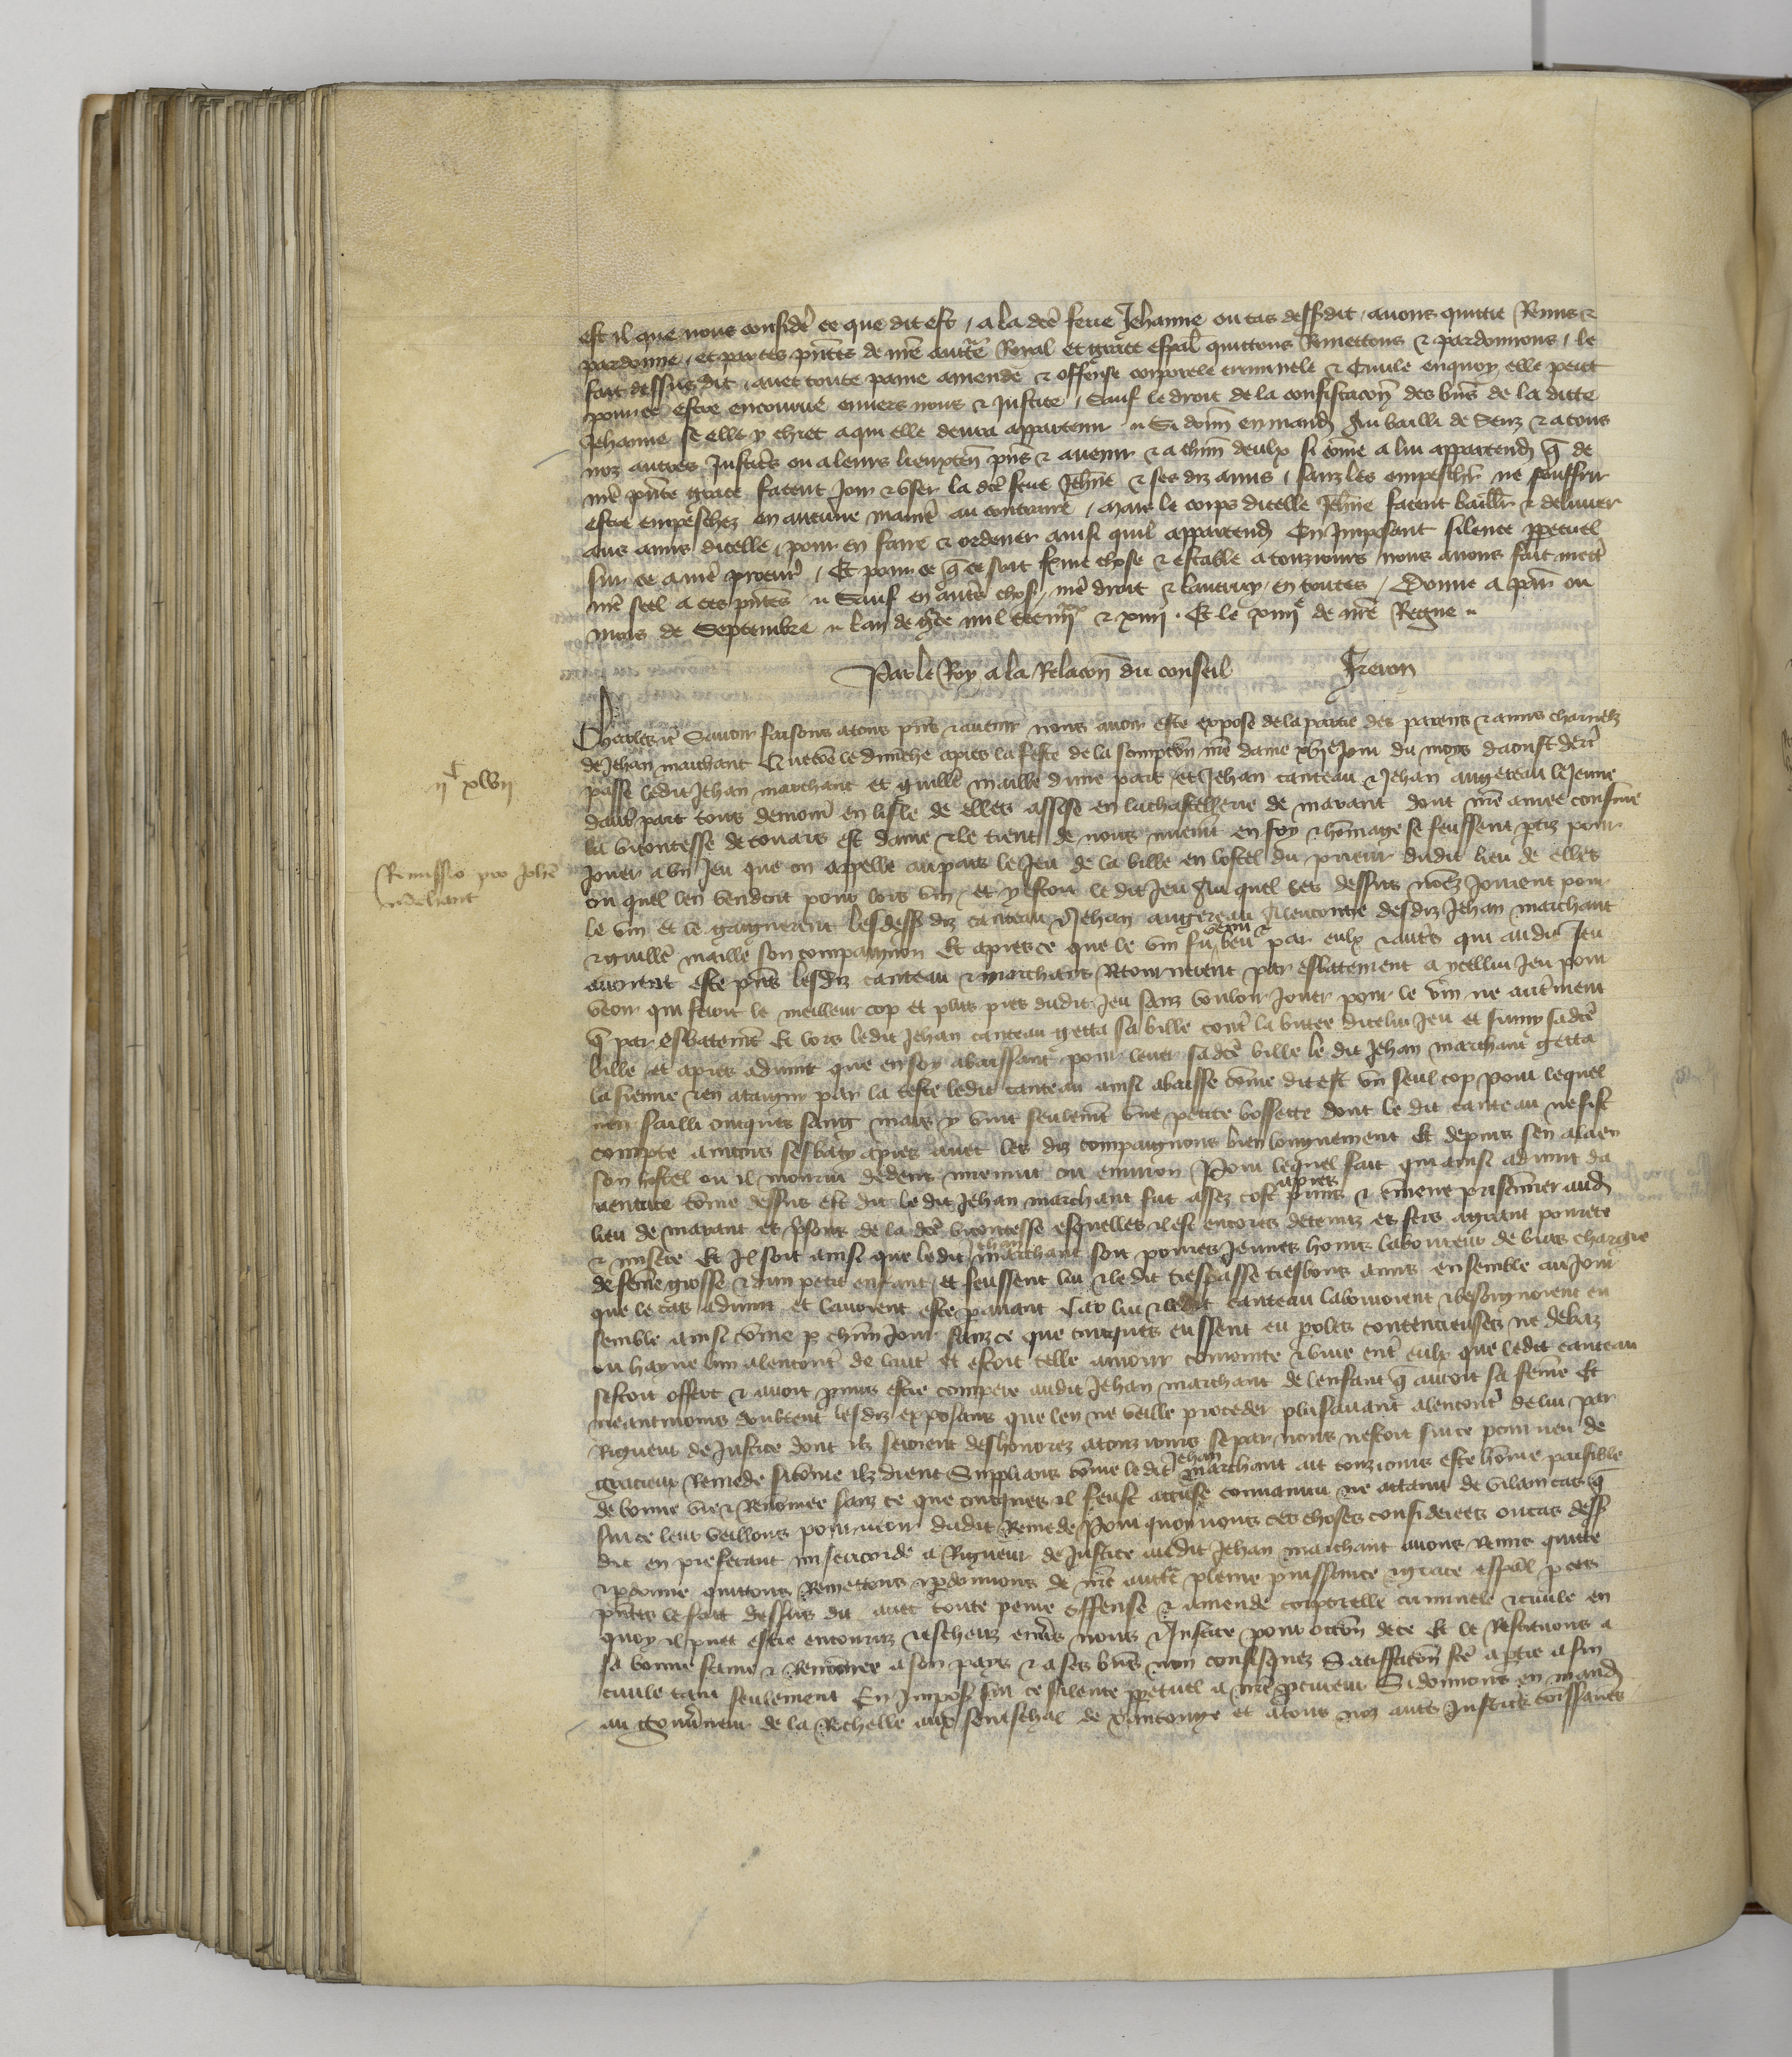 est il que nous considere ce que dit est / a la dce feue Jehanne ou cas dessusdit / avons quittie Remis &
pardonne / et par ces pntes de nre auctte Royal et grace espal quittons Remettons & pardonnons / le
fait dessus dit / avec toute paine amende & offense corporele criminele & Civile en quoy elle peut
pour ce estre encourue envers nous & Justice / Sauf le droit de la confiscacon des bns de la dicte
Jehanne se elle y chiet a qui elle devra appartenir Si donn en mand Au bailli de Senz & a tous
noz autres Justiciers ou a leurs lieuxten pns & avenir & a chun deulx si come a lui appartendra q de
nre pnte grace facent Joir & user la dce feue Jehne & ses diz amis / sanz les empeschr ne souffrir
estre empeschez en aucune maniere au contraire / mais le corps dicelle Jehne facent baillr & delivrer
aus amis dicelle / pour en faire & ordener ainsi quil appartendra En Imposant silence ppetuel
sur ce a nre procur / Et pour ce q ce soit ferme chose & estable a touzjours nous avons fait mettre
nre seel a ces pntes Sauf en autres choses nre droit & lautruy en toutes / Donne a paris ou
mois de Septembre lan de grace mil CCCIIIIxx & xiiii . Et le xiiiie de nre Regne
Par le Roy a la Relacon du conseil Freron
Charles & Savoir faisons a tous pns & avenir nous avoir este expose de la partie des parens & amis charnelz
de Jehan marchant Que come le dimenche apres la feste de la sompcon nre dame xvie Jour du mois daoust derr
passe ledit Jehan marchant et guille maille dune part et Jehan canteau & Jehan augereau le Jeune
dautre part tous demour en lisle de elles assise en la chastellerie de marant dont nre amee cousine
la vicontesse de touars est dame & le tient de nous nuement en foy & hommage se feussent priz pour
Jouer a un Jeu que on appelle au pais le Jeu de la bille en lostel du prieur dudit lieu de elles
ou quel len vendoit pour lors vin et y estoit le dit Jeu Au quel les dessus nomez Jouerent pour
le vin et le gaignerent lesdessus diz canteau & Jehan augereau Alencontre desdiz Jehan marchant
& guille maille son compaignon Et apres ce que le vin fu beu par eulx & autres qui audit Jeu
avoient este pns lesdiz canteau & marchant Retournerent par esbatement a ycellui Jeu pour
veoir qui feroit le meilleur cop et plus pres dudit Jeu sanz vouloir Jouer pour le vin ne autrement
q par esbatement Et lors ledit Jehan canteau getta sa bille contre la butee dicelui Jeu et sunny sadce
bille et apres advint que en soy abaissant pour lever sadce bille le dit Jehan marchant getta
la sienne & en ataigny par la teste ledit canteau ainsi abaisse come dit est un seul cop pour lequel
nen sailli oncques sang mais y vint seulement une petite bossette dont le dit canteau ne fist
compte aincois sesbaty apres avec les diz compaignons bien longuement Et depuis sen ala en
son hostel ou il mourut dedens mienuit ou environ Pour lequel fait qui ainsi advint da
venture come dessus est dit le dit Jehan marchant fut assez tost apres prins & emmene prisonnier aud
lieu de marant es prisons de la dce vicontesse esquelles il est encores detenuz es fers a grant povrete
& misere Et Il soit ainsi que ledit Jehan marchant soit povres Jeunes homs laboureur de bras chargie
de feme grosse & dun petit enfant et feussent lui & ledit trespasse tresbons amis ensemble au Jour
que le cas advint et lavoient este paravant Car lui & ledit canteau labouroient & besongnoient en
semble ainsi come p chun Jour sanz ce que oncques eussent eu paroles contencieuses ne debaz
ou hayne lun alencontre de lautre et estoit telle amour comointe & vive entre eulx que ledit canteau
sestoit offert & avoit promis estre compere audit Jehan marchant de lenfant q auroit sa feme Et
neantmoins doubtent lesdiz exposans que len ne veille proceder plusavant alencontre de lui par
Rigueur de Justice dont ilz seroient deshonorez a touz jours se par nous nestoit sur ce pourveu de
gracieux Remede si come ilz dient Supplians come ledit Jehan marchant ait touzjours este home paisible
de bonne vie & Renomee sanz ce que oncques il feust accuse convaincu ne attaint de vilain cas q
sur ce leur veillons pourveoir dudit Remede Pour quoy nous ces choses considerees ou cas dessus
dit en preferant misericorde a Rigueur de Justice audit Jehan marchant avons Remis quitte
& pdonne quittons Remettons & pdonnons de nre auctte pleine puissance & grace espal p ces
pntes le fait dessus dit avec toute peine offense & amende corporelle criminele & civile en
quoy il puet estre encouruz & escheuz envers nous & Justice pour occon de ce Et le Restituons a
sa bonne fame & Renomee a son pays & a ses bns non confisquez Satisfacon fce a ptie a fin
civile tant seulement En Imposant sur ce silence ppetuel a nre procureur Si donnons en mand
au gouverneur de la Rochelle aux seneschal de xantonge et a tous noz autres Justiciers &
iic xlvii
Remissio pro Johe
Merchant